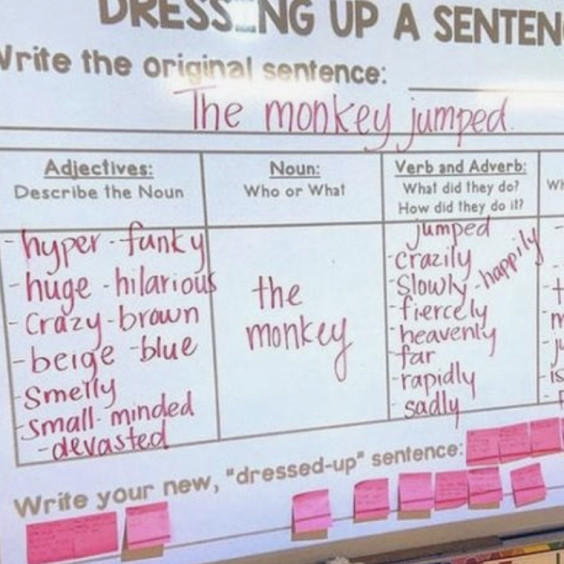 DRESSING UP A SENTEN
Write the original sentence:
The monkey jumped.
Adjectives:
Describe the Noun
Noun:
Who or What
Verb and Adverb:
What did they do?
How did they do it?
- hyper - funky
- huge - hilarious
- Crazy - brown
- beige - blue
Smelly
- Small-minded
- devasted
the
monkey
jumped
- crazily
- Slowly - happily
- fiercely
- heavenly
- far
- rapidly
- sadly
Write your new, "dressed-up" sentence: